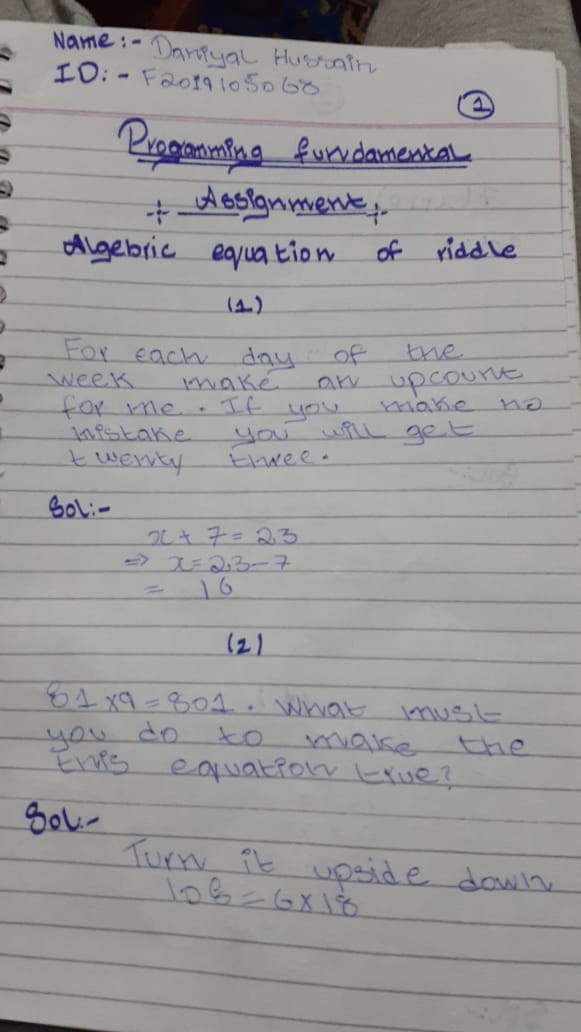 Name:- Daniyal Hussain
ID:- F2019105068
1
Programming fundamental
Assignment
Algebric equation of riddle
(1)
For each day of the
week make an upcount
for me. If you make no
mistake you will get
twenty three.
Sol:-
x + 7 = 23
⇒ x = 23 - 7
= 16
(2)
81 x 9 = 801. What must
you do to make the
this equation true?
Sol:-
Turn it upside down
108 = 6 x 18